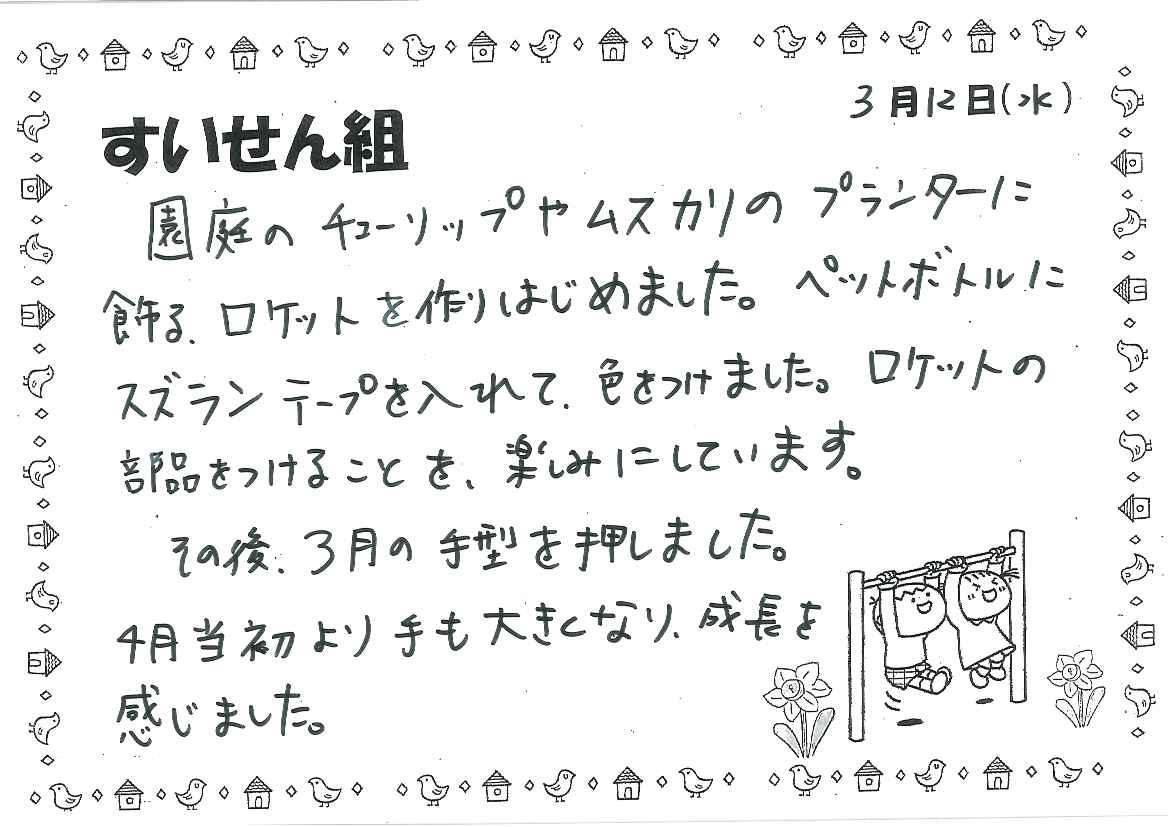 3月12日(水)
すいせん組
園庭のチューリップやムスカリのプランターに
飾る、ロケットを作りはじめました。ペットボトルに
スズランテープを入れて、色をつけました。ロケットの
部品をつけることを、楽しみにしています。
その後、3月の手型を押しました。
4月当初より手も大きくなり、成長を
感じました。